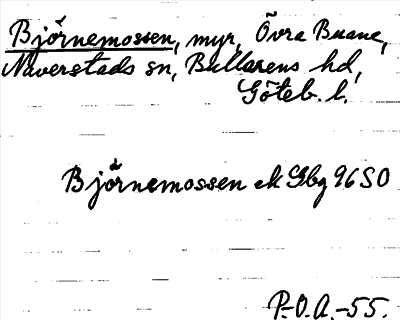 Björnemossen, myr, Övra Buane,
Naverstads sn, Bullarens hd,
Göteb. l.
Björnemossen ek Gbg 96 SO
P.-O.A.-55.